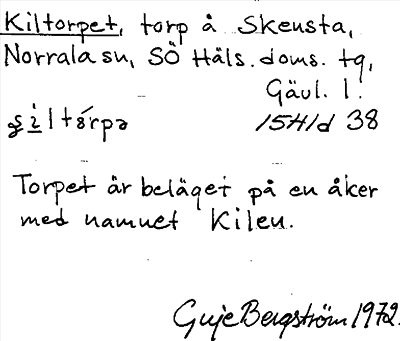 Kiltorpet, torp å Skensta,
Norrala sn, SÖ Häls. doms. tg,
Gävl. l.
15H1d 38
Torpet är beläget på en åker
med namnet Kilen.
Guje Bergström 1972.